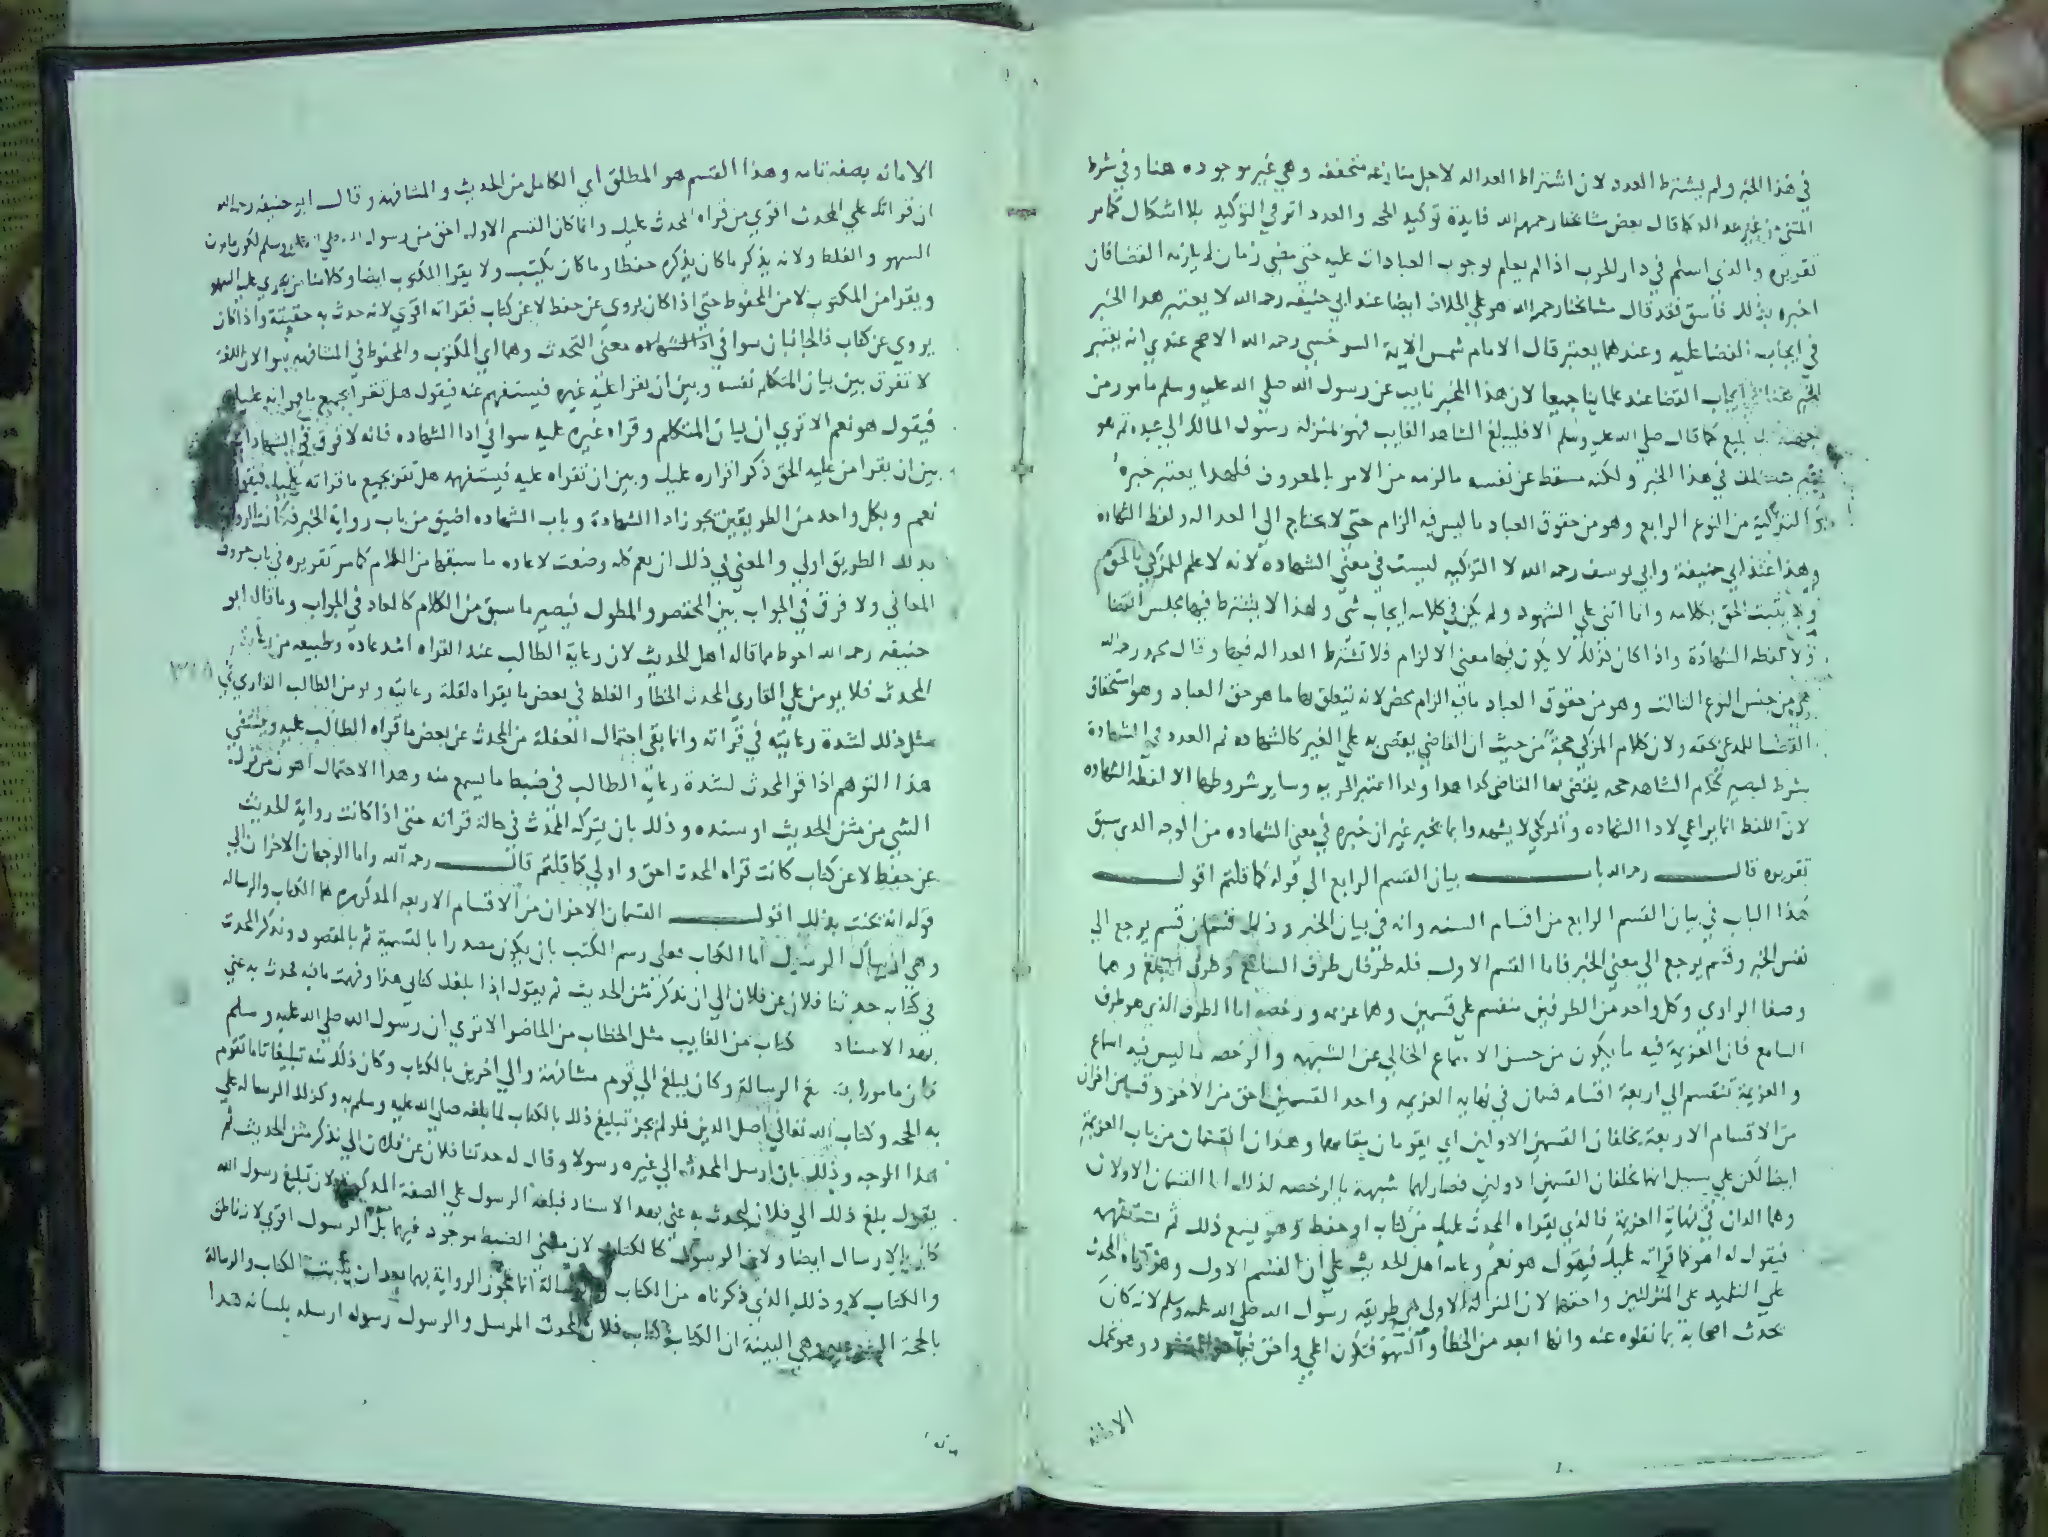 في هذا الخبر ولم يشترط العدد لان اشتراط العداله لاجل منازعه متحققه وهي غير موجوده هنا وفي شرط
المثنى من غير عداله كما قال بعض مشايخنا رحمهم الله فايدة توكيد الحجه والعدد اثر في التوكيد بلا اشكال كما مر
تقريره والذي اسلم في دار الحرب اذا لم يعلم بوجوب العبادات عليه حتى مضى زمان لم يلزمه القضا فان
اخبره بذلك فاسق فقد قال مشايخنا رحمهم الله هو علي الخلاف ايضا عند ابي حنيفه رحمه الله لا يعتبر هذا الخبر
في ايجاب القضا عليه وعندهما يعتبر قال الامام شمس الايمة السرخسي رحمه الله الاصح عندي انه يعتبر
ايجاب القضا عند علماينا جميعا لان هذا المخبر نايب عن رسول الله صلي الله عليه وسلم مامور من
جهته بالتبليغ كما قال صلي الله عليه وسلم الا فليبلغ الشاهد الغايب فهو بمنزلة رسول المالك الي عبده ثم هو
في هذا الخبر ولكنه مسقط عن نفسه ما لزمه من الامر بالمعروف فلهذا يعتبر خبره
التزكية من النوع الرابع وهو من حقوق العباد ما ليس فيه الزام حتى لا يحتاج الي العداله ولفظ الشهاده
وهذا عند ابي حنيفة وابي يوسف رحمه الله لان التزكيه ليست في معني الشهاده لانه لا علم للمزكي بالحق
ولا يثبت الحق بكلامه وانما اثنى علي الشهود ولم يكن في كلامه ايجاب شي ولهذا لا يشترط فيها مجلس القضا
ولا لفظه الشهادة واذا كان كذلك لا يكون فيها معني الالزام فلا تشترط العداله فيها وقال محمد رحمه الله
هي من جنس النوع الثالث وهو من حقوق العباد ما فيه الزام محض لانه يتعلق بها ما هو حق العباد وهو استحقاق
القضا للمدعي بحقه ولان كلام المزكي حجة من حيث ان القاضي يقضي به علي الغير كالشهاده ثم العدد في الشهادة
شرط ليصير كلام الشاهد حجه يقضي بها القاضي كذا هذا ولذا اعتبر الحريه وساير شروطها الا لفظه الشهاده
لان اللفظ انما يراعي لادا الشهاده والمزكي لا يشهد وانما يخبر غير ان خبره في معني الشهاده من الوجه الذي سبق
تقريره قال رحمه الله باب بيان القسم الرابع الي قوله كما قلتم اقول
هذا الباب في بيان القسم الرابع من اقسام السنه وانه في بيان الخبر وذلك قسمان قسم يرجع الي
نفس الخبر وقسم يرجع الي معني الخبر فاما القسم الاول فله طرفان طرف السامع وطرف المبلغ وهما
وصفا الراوي وكل واحد من الطرفين منقسم علي قسمين وهما عزيمه ورخصه اما الطرف الذي هو طرف
السامع فان العزيمة فيه ما يكون من جنس الاستماع الخالي عن الشبهه والرخصه ما ليس فيه اسماع
والعزيمة تنقسم الي اربعة اقسام قسمان في نهايه العزيمه واحد القسمين احق من الاخر وقسمان اخران
من الاقسام الاربعة يخلفان القسمين الاولين اي يقومان مقامهما وهذان القسمان من باب العزيمة
ايضا لكن علي سبيل انهما يخلفان القسمين الاولين فصار لهما شبهة بالرخصه لذلك اما القسمان الاولان
وهما اللذان في نهاية العزيمة فالذي يقراه المحدث عليك من كتاب او حفظ وهو يسمع ذلك ثم تستفهمه
فيقول له اهو كما قراته عليك فيقول هو نعم وعامه اهل الحديث علي ان القسم الاول وهو قراه المحدث
علي التلميذ علي المنزلتين واحقهما لان المنزلة الاولي هي طريقه رسول الله صلي الله عليه وسلم لانه كان
يحدث اصحابه بما نقلوه عنه وانها ابعد من الخطا والسهو فتكون اعلي واحق فيما هو المقصود وهو تحمل
الامانه
الامانه بصفه تامه وهذا القسم هو المطلق اي الكامل من الحديث والمشافهه وقال ابو حنيفه رحمه الله
ان قراتك علي المحدث اقوي من قراه المحدث عليك وانما كان القسم الاول احق من رسول الله صلي الله عليه وسلم لكونه مامون
السهو والغلط ولانه يذكر ما كان يذكره حفظا وما كان يكتب ولا يقرا المكتوب ايضا وكلامنا فيمن يجري عليه السهو
ويقرا من المكتوب لا من المحفوظ حتي اذا كان يروي عن حفظ لا عن كتاب فقراته اقوي لانه حدث به حقيقة واذا كان
يروي عن كتاب فالجانبان سوا في معني التحدث وهما اي المكتوب والمحفوظ في المشافهه سوا لان اللغة
لا تفرق بين بيان المتكلم نفسه وبين ان يقرا عليه غيره فيستفهم عنه فيقول هل تقر بجميع ما قراته عليك
فيقول هو نعم الا تري ان بيان المتكلم وقراه غيره عليه سوا في ادا الشهاده فانه لا فرق في الشهادات
بين ان يقرا من عليه الحق ذكر اقراره عليك وبين ان تقراه عليه فتستفهمه هل تقر بجميع ما قراته عليك فيقول
نعم وبكل واحد من الطريقين يجوز ادا الشهادة وباب الشهاده اضيق من باب رواية الخبر فكانت الرواية
بذلك الطريق اولي والمعني في ذلك ان نعم كله وضعت لاعاده ما سبقها من الكلام كما مر تقريره في باب حروف
المعاني ولا فرق في الجواب بين المختصر والمطول فيصير ما سبق من الكلام كالمعاد في الجواب وما قاله ابو
حنيفه رحمه الله احوط مما قاله اهل الحديث لان رعاية الطالب عند القراه اشد عاده وطبيعه من رعايه
المحدث فلا يومن علي القاري المحدث الخطا والغلط في بعض ما يقراه لقلة رعايته ويومن الطالب القاري في
مثل ذلك لشدة رعايته في قراته وانما يقي احتمال الغفلة من المحدث عن بعض ما قراه الطالب عليه وينتفي
هذا التوهم اذا قر المحدث لشدة رعاية الطالب في ضبط ما يسمع منه وهذا الاحتمال اهون من ترك
الشي من متن الحديث او سنده وذلك بان يتركه المحدث في حالة قراته حتى اذا كانت رواية الحديث
عن حفظ لا عن كتاب كانت قراه المحدث احق واولي كما قلتم قال رحمه الله واما الوجهان الاخران الي
قوله انه يحنث بذلك اقول القسمان الاخران من الاقسام الاربعه المذكوره هما الكتاب والرساله
وهي ارسال الرسول اما الكتاب فعلي رسم الكتب بان يكون مصدرا بالتسمية ثم بالمقصود ويذكر المحدث
في كتابه حدثنا فلان عن فلان الي ان يذكر متن الحديث ثم يقول اذا بلغك كتابي هذا وفهمت ما فيه فحدث به عني
بهذا الاسناد كتاب من الغايب مثل الخطاب من الحاضر الا تري ان رسول الله صلي الله عليه وسلم
كان مامورا بتبليغ الرسالة وكان يبلغ الي قوم مشافهة والي اخرين بالكتاب وكان ذلك منه تبليغا تاما تقوم
به الحجه وكتاب الله تعالي اصل الدين فلو لم يجز تبليغ ذلك بالكتاب لما بلغه صلي الله عليه وسلم به وكذلك الرساله علي
هذا الوجه وذلك بان ارسل المحدث الي غيره رسولا وقال له حدثنا فلان عن فلان الي يذكر متن الحديث ثم
يقول بلغ ذلك الي فلان ليحدث به عني بهذا الاسناد فبلغه الرسول علي الصفة المذكوره لان تبليغ رسول الله
كان بالارسال ايضا ولان الرسول كالكتاب لان معني الضبط موجود فيهما بل الرسول اقوي لانه ناطق
والكتاب لا وذلك الذي ذكرناه من الكتاب والرسالة انما تجوز الرواية بهما بعد ان يثبت الكتاب والرسالة
بالحجة الشرعيه وهي البينة ان الكتاب كتاب فلان المحدث المرسل والرسول رسوله ارسله بلسانه هذا